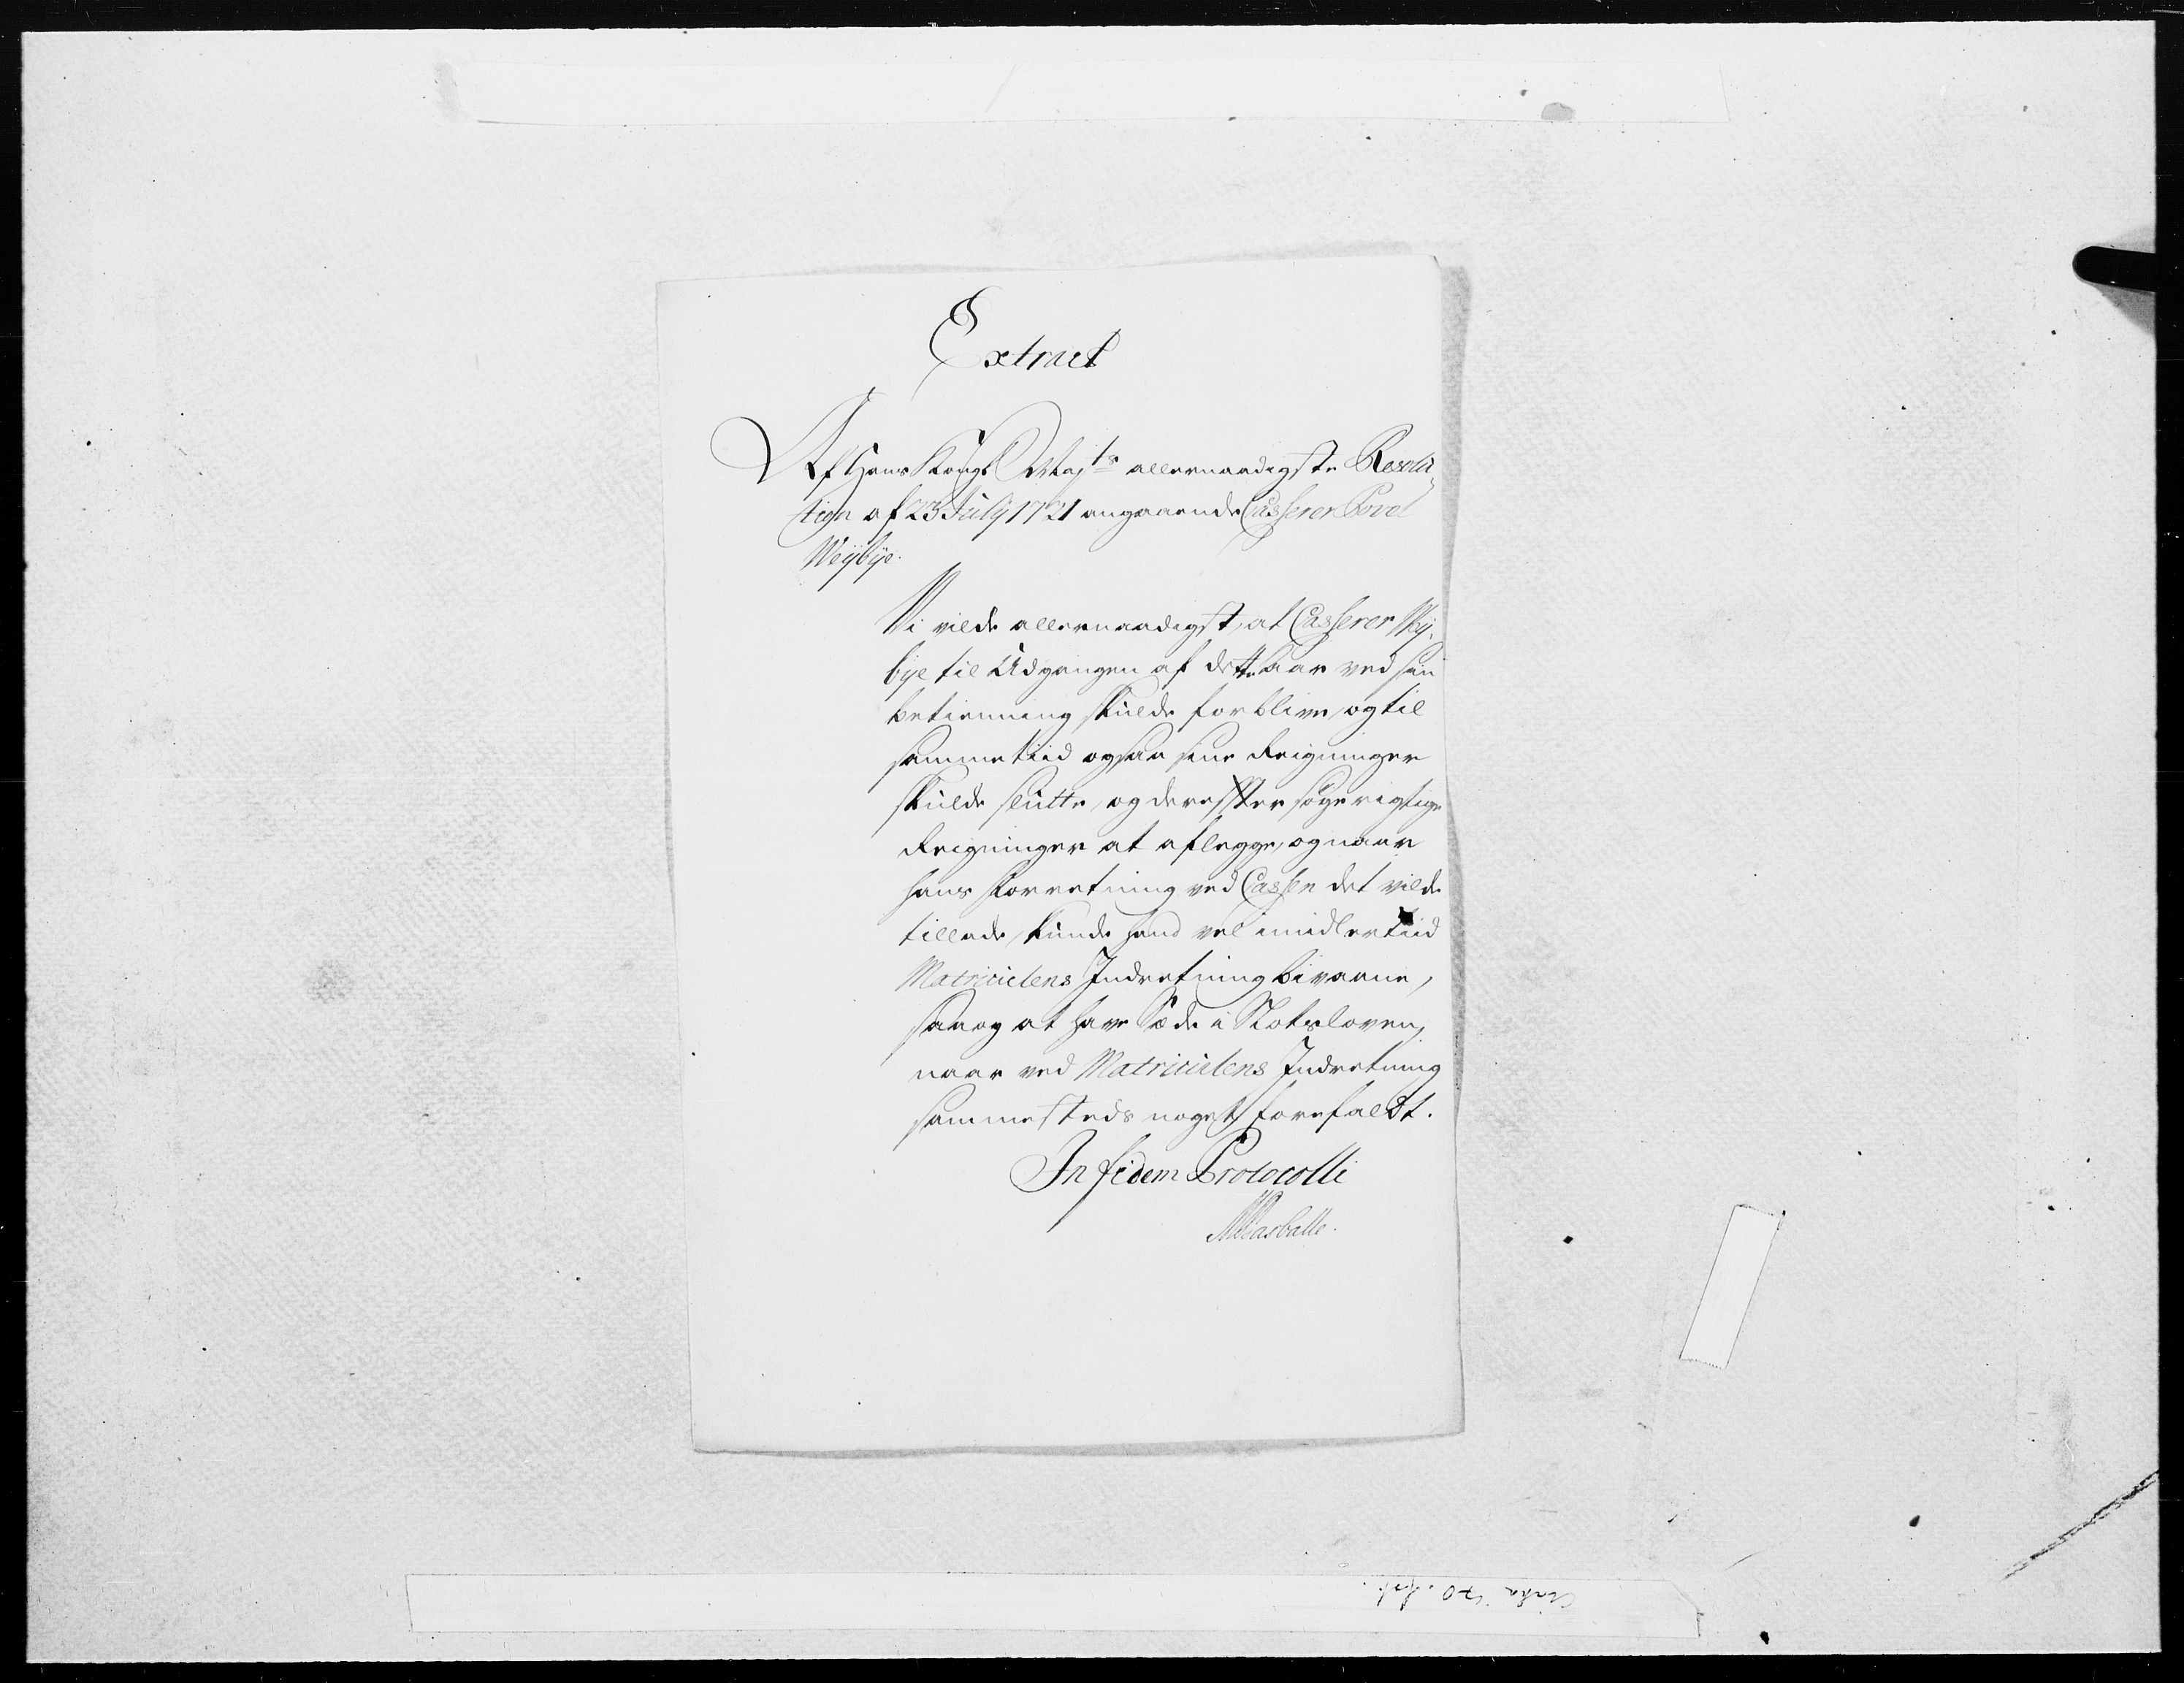 Extract
Af Hans Kongl Majts allernaadigste Resolu-
tion af 23 July 1721 angaaende Casserer Povel
Weybye.
Vi vilde allernaadigst, at Casserer Wey-
bye til Udgangen af dette aar ved sin
betienning skulde forblive, og til
samme tiid ogsaa sine Reigninger
skulde slutte, og derefter søge rigtige
Reigninger at aflegge, og naar
hans Forretning ved Cassen det vilde
tillade, kunde hand vel imidlertiid
Matriculens Indretning bivaane,
saa og at have Sæde i Slotsloven,
naar ved Matriculens Indretning
sammesteds noget forefaldt.
In fidem Protocolli